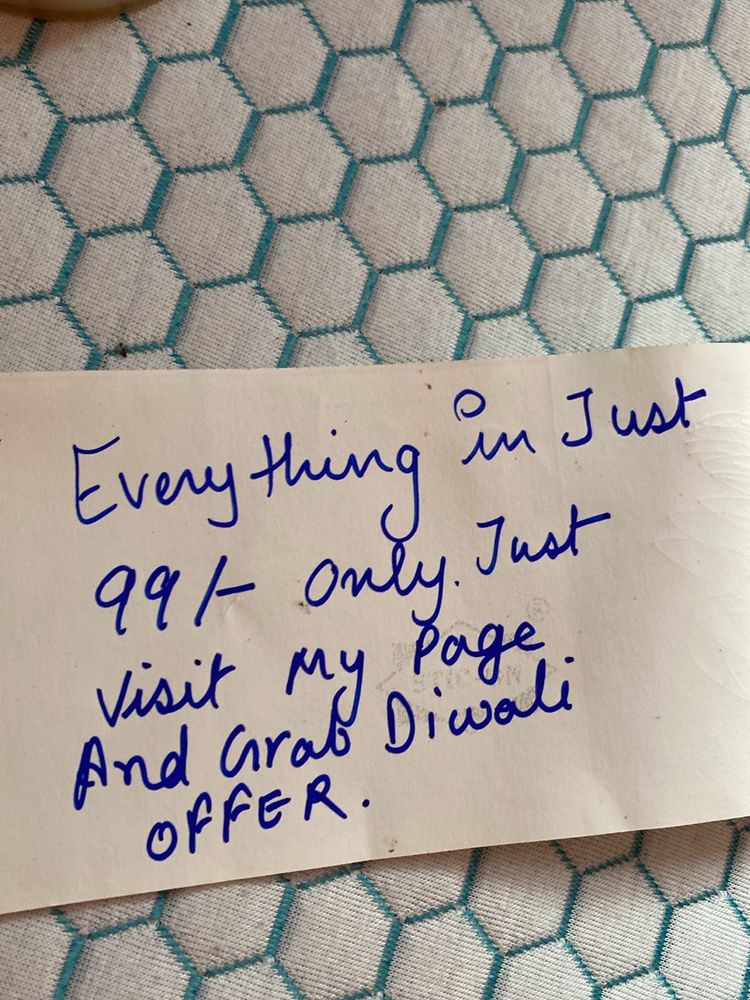 Everything in Just
99/- Only. Just
Visit My Page
And Grab Diwali
OFFER.